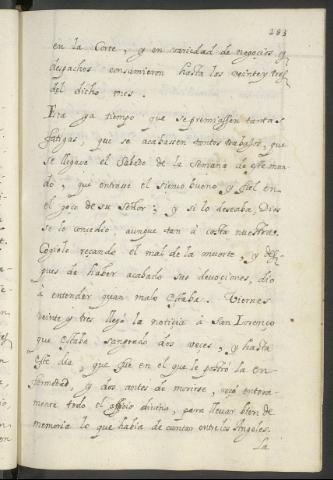 283
en la Corte, y en variedad de negocios, y
despachos consumieron hasta los veinte y tres
del dicho mes.
Era ya tiempo que se premiassen tantas
fatigas, que se acabassen tantos trabajos, que
se llegase el Sabado de la Semana de este
que entrase el siervo bueno y fiel en
el goço de su Señor; y si lo deseaba, Dios
se lo concedio, aunque tan a costa nuestra.
Cogiole reçando el mal de la muerte, y des-
pues de haber acabado sus devociones, dio
à entender quan malo estaba. Viernes
veinte y tres llegó la noticia à San Lorenço
que estaba sangrado dos veces, y hasta
este dia, que fue en el que le postró la en-
fermedad, y dos antes de morirse, reçó entera-
mente todo el officio divino, para llevar bien de
memoria lo que habia de cantar entre los Angeles.
La